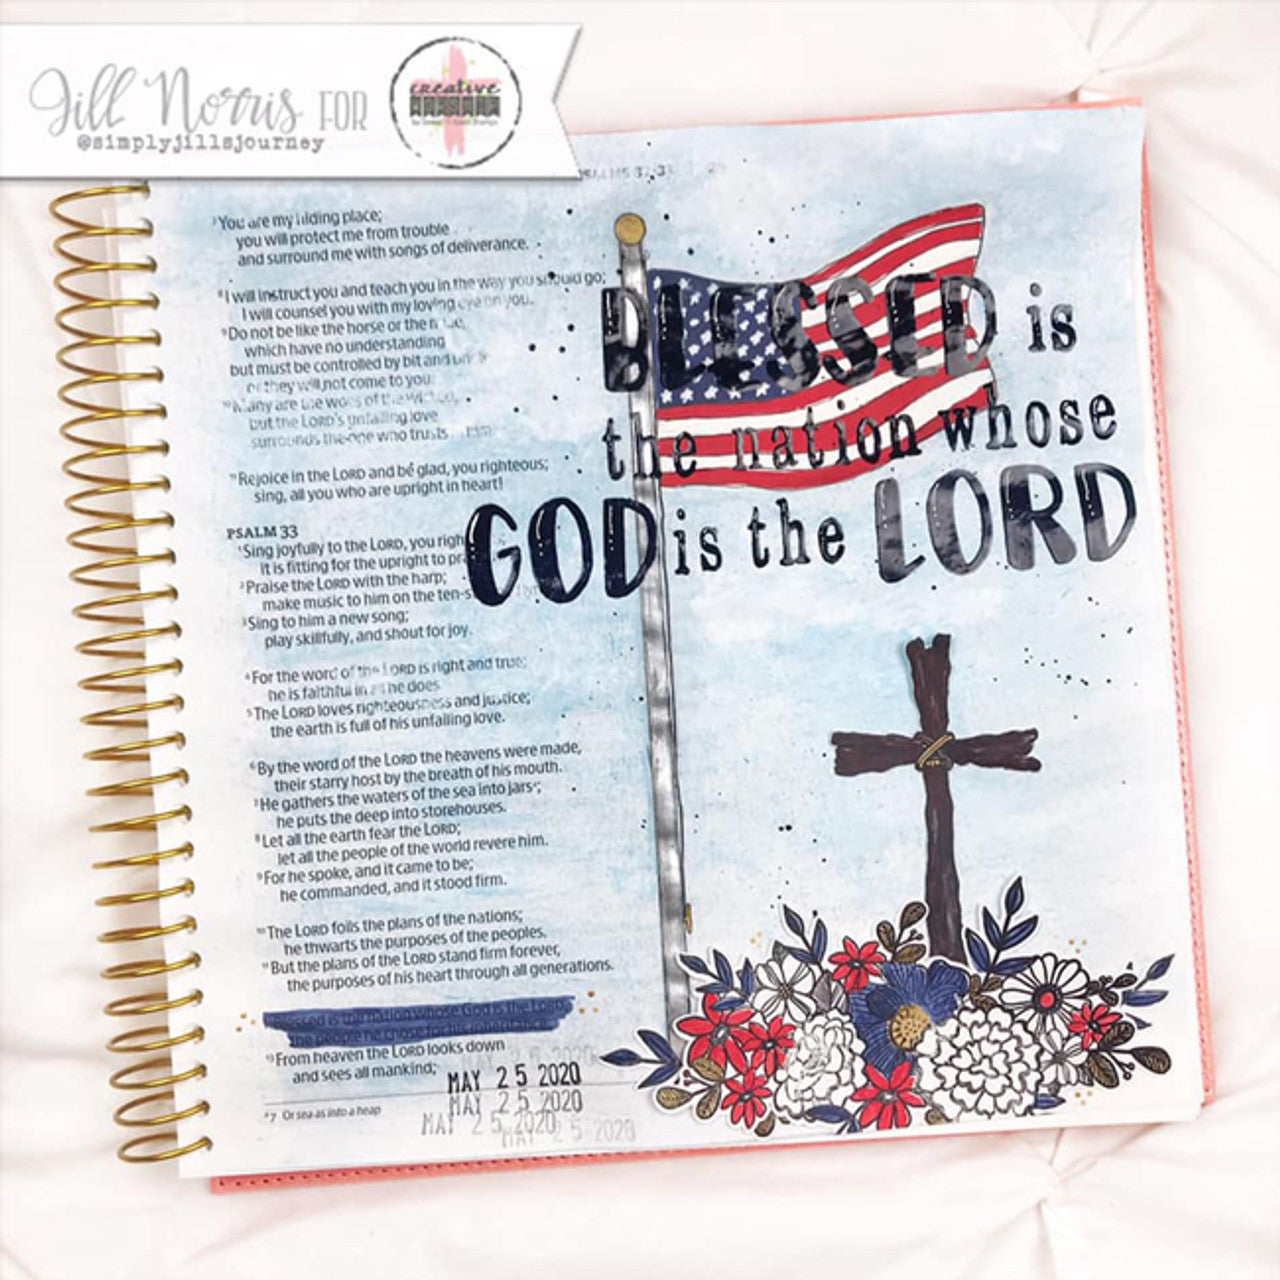 Jill Norris FOR
@simplyjillsjourney
creative
PSALMS 32:33
7 You are my hiding place;
you will protect me from trouble
and surround me with songs of deliverance.
8 I will instruct you and teach you in the way you should go;
I will counsel you with my loving eye on you.
9 Do not be like the horse or the mule,
which have no understanding
but must be controlled by bit and bridle
or they will not come to you.
10 Many are the woes of the wicked,
but the LORD's unfailing love
surrounds the one who trusts in him.
11 Rejoice in the LORD and be glad, you righteous;
sing, all you who are upright in heart!
PSALM 33
1 Sing joyfully to the LORD, you righ
it is fitting for the upright to pra
2 Praise the LORD with the harp;
make music to him on the ten-s
3 Sing to him a new song;
play skillfully, and shout for joy.
4 For the word of the LORD is right and true;
he is faithful in all he does.
5 The LORD loves righteousness and justice;
the earth is full of his unfailing love.
6 By the word of the LORD the heavens were made,
their starry host by the breath of his mouth.
7 He gathers the waters of the sea into jars a;
he puts the deep into storehouses.
8 Let all the earth fear the LORD;
let all the people of the world revere him.
9 For he spoke, and it came to be;
he commanded, and it stood firm.
10 The LORD foils the plans of the nations;
he thwarts the purposes of the peoples.
11 But the plans of the LORD stand firm forever,
the purposes of his heart through all generations.
Blessed is the nation whose God is the LORD,
the people he chose for his inheritance.
13 From heaven the LORD looks down
and sees all mankind;
a 7 Or sea as into a heap
MAY 25 2020
MAY 25 2020
MAY 25 2020
MAY 25 2020
MAY 25 2020
BLESSED is
the nation whose
GOD is the LORD